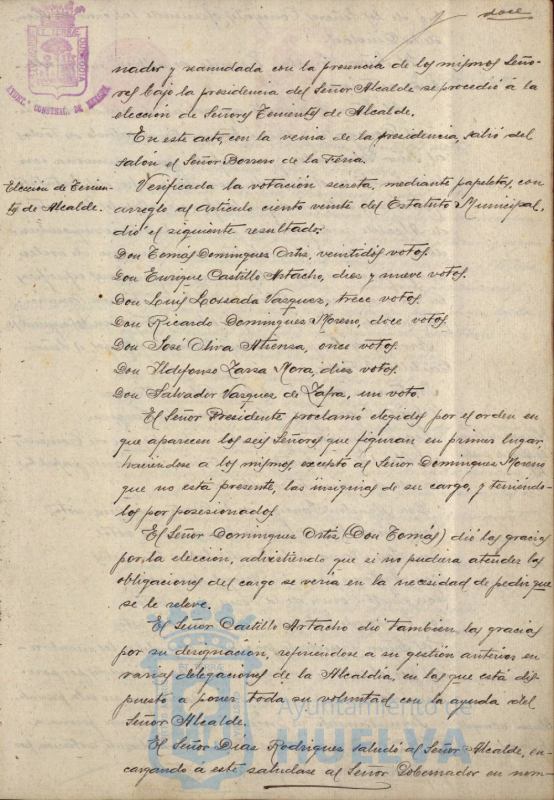 doce
AYUNT. CONSTNAL. DE HUELVA
nador y reanudada con la presencia de los mismos Seño-
res bajo la presidencia del Señor Alcalde se procedió a la
elección de Señores Tenientes de Alcalde.
En este acto, con la venia de la presidencia, salió del
salon el Señor Borrero de la Feria.
Elección de Tenien-
tes de Alcalde.
Verificada la votación secreta, mediante papeletas, con
arreglo al artículo ciento veinte del Estatuto Municipal,
dió el siguiente resultado:
Don Tomás Domínguez Ortiz, veintidós votos.
Don Enrique Castillo Artacho, diez y nueve votos.
Don Luis Lossada Vázquez, trece votos.
Don Ricardo Domínguez Moreno, doce votos.
Don José Oliva Atienza, once votos.
Don Ildefonso Zarza Mora, diez votos.
Don Salvador Vázquez de Zafra, un voto.
El Señor Presidente proclamó elegidos por el orden en
que aparecen los seis Señores que figuran en primer lugar
haciéndose a los mismos, excepto al Señor Domínguez Moreno
que no está presente, las insignias de su cargo, y teniéndo-
los por posesionados.
El Señor Domínguez Ortiz (Don Tomás) dió las gracias
por la elección, advirtiendo que si no pudiera atender las
obligaciones del cargo se vería en la necesidad de pedir que
se le releve.
El Señor Castillo Artacho dió tambien las gracias
por su designación, refiriéndose a su gestión anterior en
varias delegaciones de la Alcaldía, en las que está dis-
puesto a poner toda su voluntad con la ayuda del
Señor Alcalde.
El Señor Díaz Rodríguez saludó al Señor Alcalde, en-
cargando a este saludase al Señor Gobernador en nom-
Ayuntamiento de
HUELVA